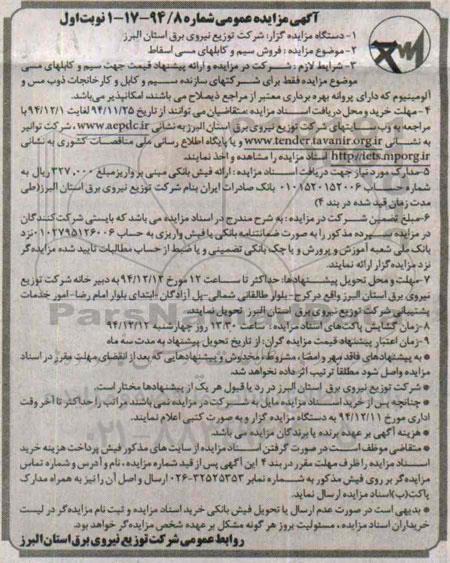 آگهی مزایده عمومی شماره ۹۴/۸-۱۷-۱ نوبت اول
۱- دستگاه مزایده گزار: شرکت توزیع نیروی برق استان البرز
۲- موضوع مزایده: فروش سیم و کابلهای مسی اسقاط
۳- شرایط لازم: شرکت در مزایده و ارائه پیشنهاد قیمت جهت سیم و کابلهای مسی
موضوع مزایده فقط برای شرکتهای سازنده سیم و کابل و کارخانجات ذوب مس و
آلومینیوم که دارای پروانه بهره برداری معتبر از مراجع ذیصلاح می باشند، امکانپذیر می‌باشد.
۴- مهلت خرید و محل دریافت اسناد مزایده: متقاضیان می توانند از تاریخ ۹۴/۱۱/۲۵ لغایت ۹۴/۱۲/۱ با
مراجعه به وب سایتهای شرکت توزیع نیروی برق استان البرز به نشانی www.aepdc.ir، شرکت توانیر
به نشانی www.tender.tavanir.org.ir و یا پایگاه اطلاع رسانی ملی مناقصات کشوری به نشانی
http://iets.mporg.ir اسناد مزایده را مشاهده و اخذ نمایند.
۵- مدارک مورد نیاز جهت دریافت اسناد مزایده: ارائه فیش بانکی مبنی بر واریز مبلغ ۳۲۷,۰۰۰ ریال به
شماره حساب ۰۱۰۱۵۲۰۱۵۲۰۰۶ بانک صادرات ایران بنام شرکت توزیع نیروی برق استان البرز (طی
مدت زمان قید شده در بند ۴)
۶- مبلغ تضمین شرکت در مزایده: به شرح مندرج در اسناد مزایده می باشد که بایستی شرکت کنندگان
در مزایده سپرده مذکور را به صورت ضمانتنامه بانکی یا فیش واریزی به حساب ۰۱۰۲۷۹۵۱۲۶۰۰۶ نزد
بانک ملی شعبه آموزش و پرورش و یا چک بانکی تضمینی و یا ضبط از حساب مطالبات تایید شده مزایده گر
نزد مزایده گزار ارائه نمایند.
۷- مهلت و محل تحویل پیشنهادها: حداکثر تا ساعت ۱۲ مورخ ۹۴/۱۲/۱۲ به دبیر خانه شرکت توزیع
نیروی برق استان البرز واقع در کرج- بلوار طالقانی شمالی- پل آزادگان- ابتدای بلوار امام رضا- امور خدمات
پشتیبانی شرکت توزیع نیروی برق استان البرز تحویل نمایند.
۸- زمان گشایش پاکت‌های اسناد مزایده: ساعت ۱۳:۳۰ روز چهارشنبه ۹۴/۱۲/۱۲
۹- زمان اعتبار پیشنهاد قیمت مزایده گران: از تاریخ تحویل پیشنهاد به مدت سه ماه
* به پیشنهادهای فاقد مهر و امضا، مشروط، مخدوش و پیشنهادهایی که بعد از انقضای مهلت مقرر در اسناد
مزایده واصل شود مطلقاً ترتیب اثر داده نخواهد شد.
* شرکت توزیع نیروی برق استان البرز در رد یا قبول هر یک از پیشنهادها مختار است.
* چنانچه پس از خرید اسناد مزایده مایل به شرکت در مزایده نمی باشند مراتب را حداکثر تا آخر وقت
اداری مورخ ۹۴/۱۲/۱۱ به دستگاه مزایده گزار و به صورت کتبی اعلام نمایند.
* هزینه آگهی بر عهده برنده یا برندگان مزایده می باشد.
* متقاضی موظف است در صورت گرفتن اسناد مزایده از سایت های مذکور فیش پرداخت هزینه خرید
اسناد مزایده را ظرف مهلت مقرر در بند ۴ این آگهی پس از قید شماره مزایده، نام و آدرس و شماره تماس
مزایده گر بر روی فیش مذکور به شماره نمابر ۳۲۵۲۵۳۵۳-۰۲۶ ارسال و اصل آن را نیز به همراه مدارک
پاکت(ب) اسناد مزایده ارسال نماید.
* بدیهی است در صورت عدم ارسال یا تحویل فیش بانکی خرید اسناد مزایده و ثبت نام مزایده گر در لیست
خریداران اسناد مزایده، مسئولیت بروز هر گونه مشکل بر عهده شخص مزایده گر خواهد بود.
روابط عمومی شرکت توزیع نیروی برق استان البرز